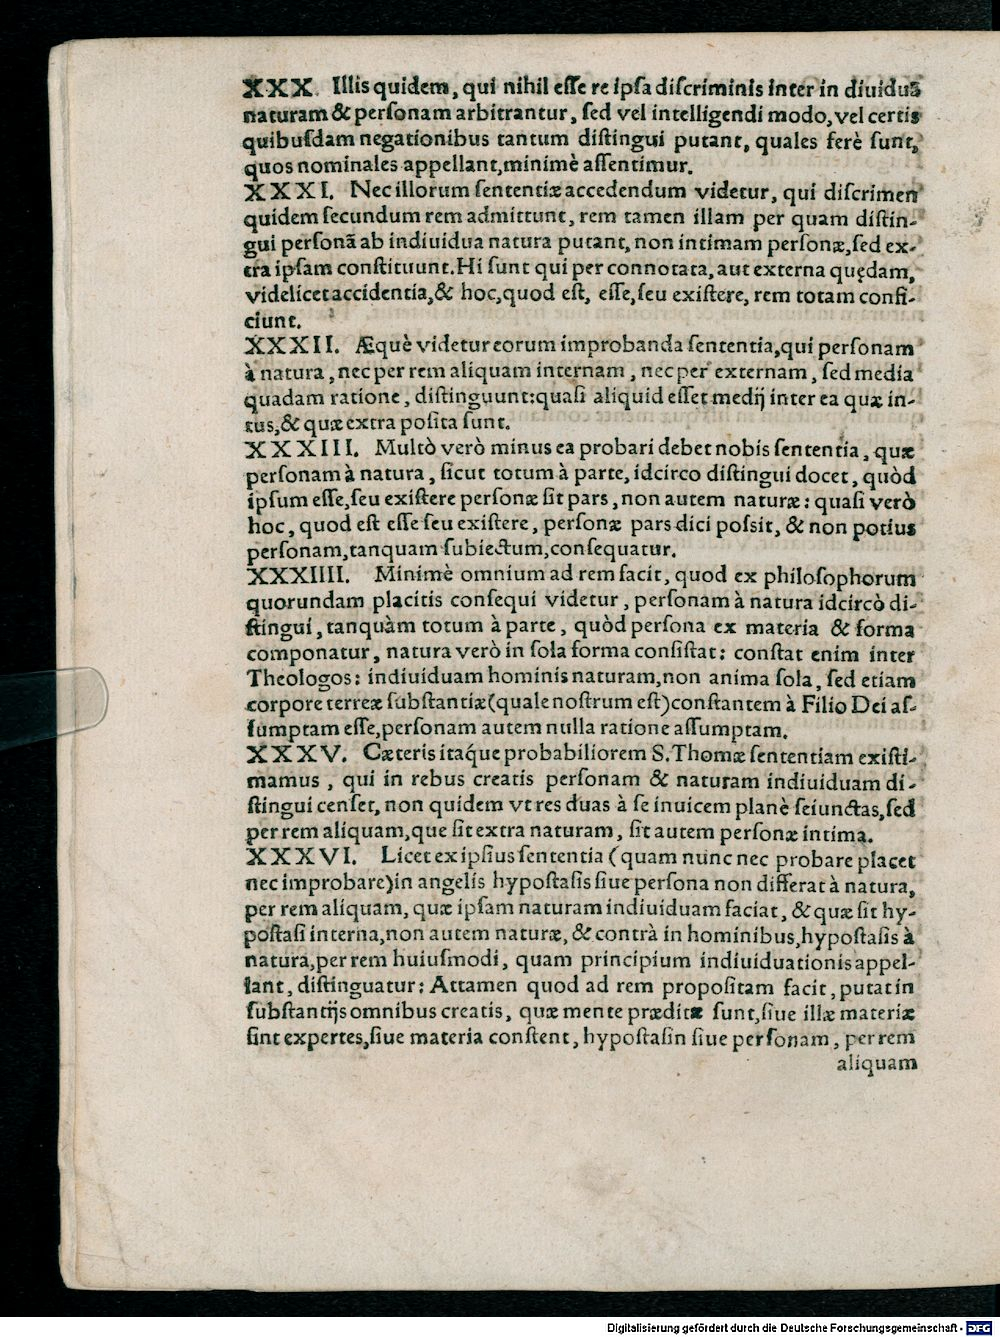 XXX. Illis quidem, qui nihil esse re ipsa discriminis inter in diuiduā
naturam & personam arbitrantur, sed vel intelligendi modo, vel certis
quibusdam negationibus tantum distingui putant, quales ferè sunt,
quos nominales appellant, minimè assentimur.
XXXI. Nec illorum sententiæ accedendum videtur, qui discrimen
quidem secundum rem admittunt, rem tamen illam per quam distin-
gui personā ab indiuidua natura putant, non intimam personæ, sed ex-
tra ipsam constituunt. Hi sunt qui per connotata, aut externa quędam,
videlicet accidentia, & hoc, quod est, esse, seu existere, rem totam confi-
ciunt.
XXXII. Æquè videtur eorum improbanda sententia, qui personam
à natura, nec per rem aliquam internam, nec per externam, sed media
quadam ratione, distinguunt: quasi aliquid esset medij inter ea quæ in-
tus, & quæ extra posita sunt.
XXXIII. Multò verò minus ea probari debet nobis sententia, quæ
personam à natura, sicut totum à parte, idcirco distingui docet, quòd
ipsum esse, seu existere personæ sit pars, non autem naturæ: quasi verò
hoc, quod est esse seu existere, personæ pars dici possit, & non potius
personam, tanquam subiectum, consequatur.
XXXIIII. Minimè omnium ad rem facit, quod ex philosophorum
quorundam placitis consequi videtur, personam à natura idcircò di-
stingui, tanquàm totum à parte, quòd persona ex materia & forma
componatur, natura verò in sola forma consistat: constat enim inter
Theologos: indiuiduam hominis naturam, non anima sola, sed etiam
corpore terreæ substantiæ (quale nostrum est) constantem à Filio Dei as-
sumptam esse, personam autem nulla ratione assumptam.
XXXV. Cæteris itaque probabiliorem S. Thomæ sententiam existi-
mamus, qui in rebus creatis personam & naturam indiuiduam di-
stingui censet, non quidem vt res duas à se inuicem planè seiunctas, sed
per rem aliquam, que sit extra naturam, sit autem personæ intima.
XXXVI. Licet ex ipsius sententia (quam nunc nec probare placet
nec improbare) in angelis hypostasis siue persona non differat à natura,
per rem aliquam, quæ ipsam naturam indiuiduam faciat, & quæ sit hy-
postasi interna, non autem naturæ, & contrà in hominibus, hypostasis à
natura, per rem huiusmodi, quam principium indiuiduationis appel-
lant, distinguatur: Attamen quod ad rem propositam facit, putat in
substantijs omnibus creatis, quæ mente præditæ sunt, siue illæ materiæ
sint expertes, siue materia constent, hypostasin siue personam, per rem
aliquam
Digitalisierung gefördert durch die Deutsche Forschungsgemeinschaft - DFG